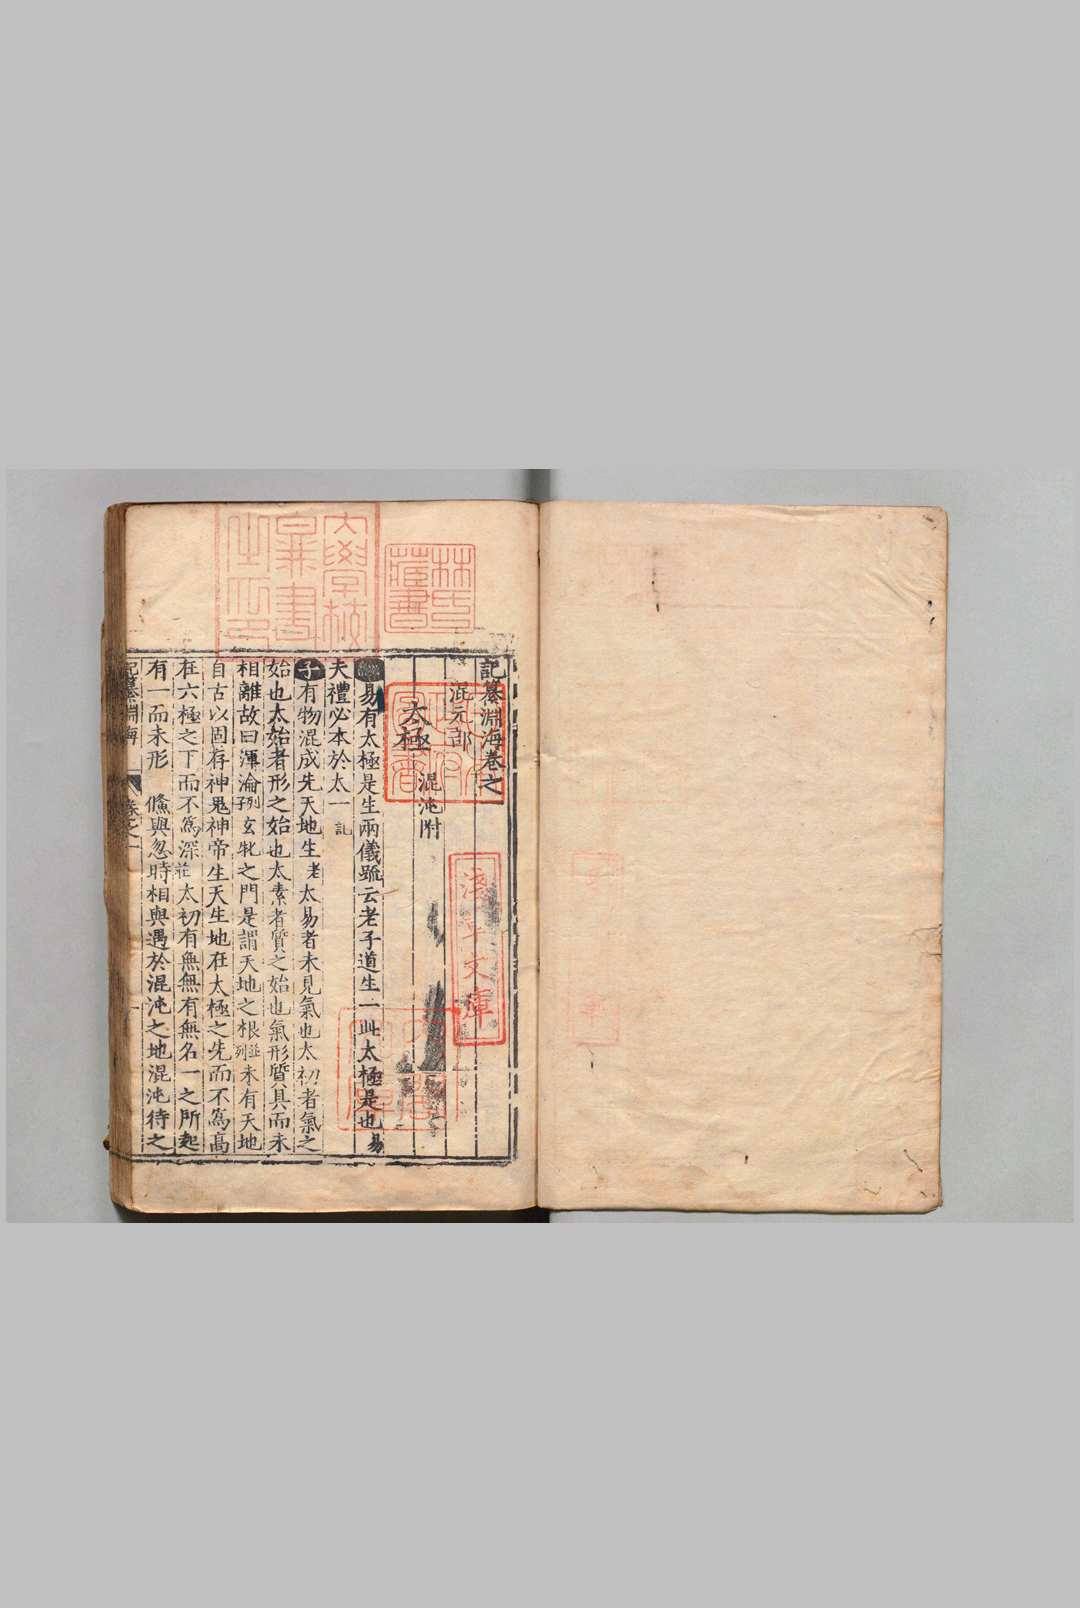 記纂淵海卷之
混元部
太極 混沌附
易有太極是生兩儀䟽云老子道生一此太極是也易
夫禮必本於太一記
子有物混成先天地生老太易者未見氣也太初者氣之
始也太始者形之始也太素者質之始也氣形質具而未
相離故曰渾淪列子玄牝之門是謂天地之根並列未有天地
自古以固存神鬼神帝生天生地在太極之先而不為高
在六極之下而不為深莊太初有無無有無名一之所起
有一而未形 儵與忽時相與遇於混沌之地混沌待之
記纂淵海 卷之一
林氏藏書
文庫